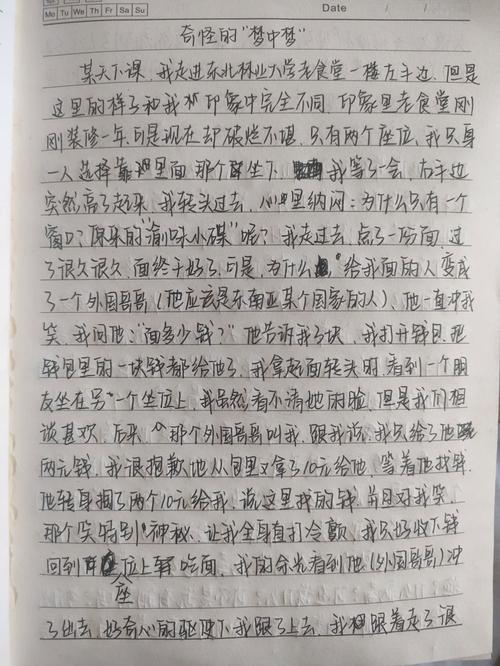 Mo Tu We Th Fr Sa Su
Date
奇怪的"梦中梦"
某天下课，我走进东北林业大学老食堂一楼左手边，但是
这里的样子和我印象中完全不同，印象里老食堂刚
刚装修一年，可是现在却破烂不堪，只有两个座位，我只身
一人选择靠里面那个坐下，我等了一会，右手边
突然亮了起来，我转头过去，心里纳闷：为什么只有一个
窗口？原来的"渝味小碟"呢？我走过去，点了一份面，过
了很久很久，面终于好了，可是，为什么给我面的人变成
了一个外国哥哥（他应该是东南亚某个国家的人）、他一直冲我
笑，我问他："面多少钱？"他告诉我3块，我打开钱包，把
钱包里的一块钱都给他了，我拿起面转头时，看到一个朋
友坐在另一个坐位上，我虽然看不清她的脸，但是我们相
谈甚欢，后来，那个外国哥哥叫我，跟我说，我只给了他
两元钱，我很抱歉地从包里又拿了10元给他，等着他找钱，
他转身掏了两个10元给我，说这里找的钱，并且对我笑，
那个笑特别神秘，让我全身直打冷颤，我只好收下钱
回到座位上吃面，我的余光看到他（外国哥哥）冲
了出去，好奇心的驱使下我跟了上去，我想跟着走了很